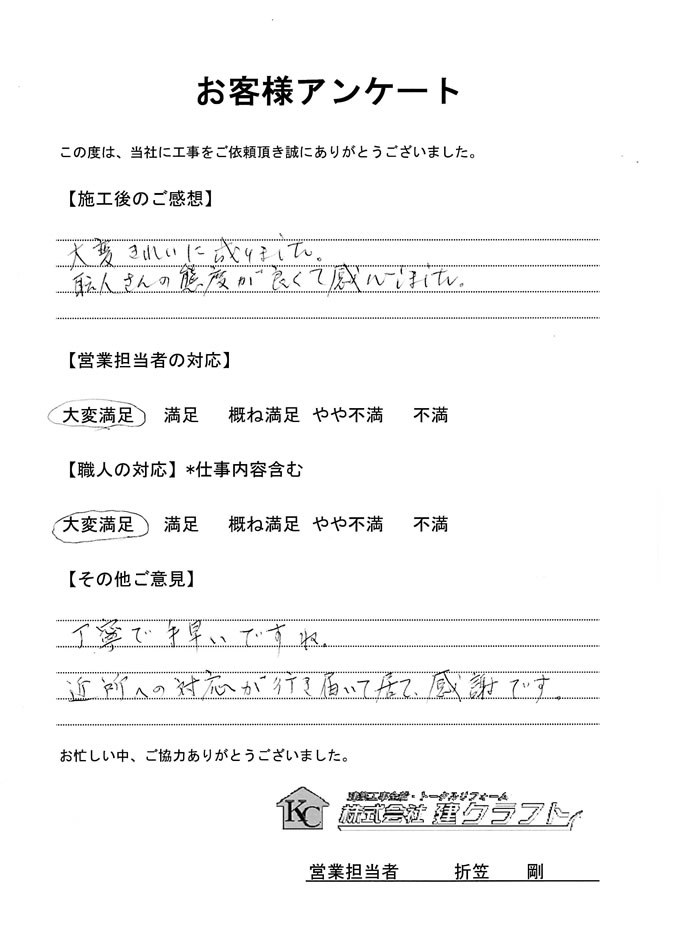 お客様アンケート
この度は、当社に工事をご依頼頂き誠にありがとうございました。
【施工後のご感想】
大変きれいに成りました。
職人さんの態度が良くて感心しました。
【営業担当者の対応】
大変満足 満足 概ね満足 やや不満 不満
【職人の対応】*仕事内容含む
大変満足 満足 概ね満足 やや不満 不満
【その他ご意見】
丁寧で手早いですね。
近所への対応が行き届いて居て、感謝です。
お忙しい中、ご協力ありがとうございました。
KC
建築工事全般・トータルリフォーム
株式会社 建クラフト
営業担当者 折笠 剛